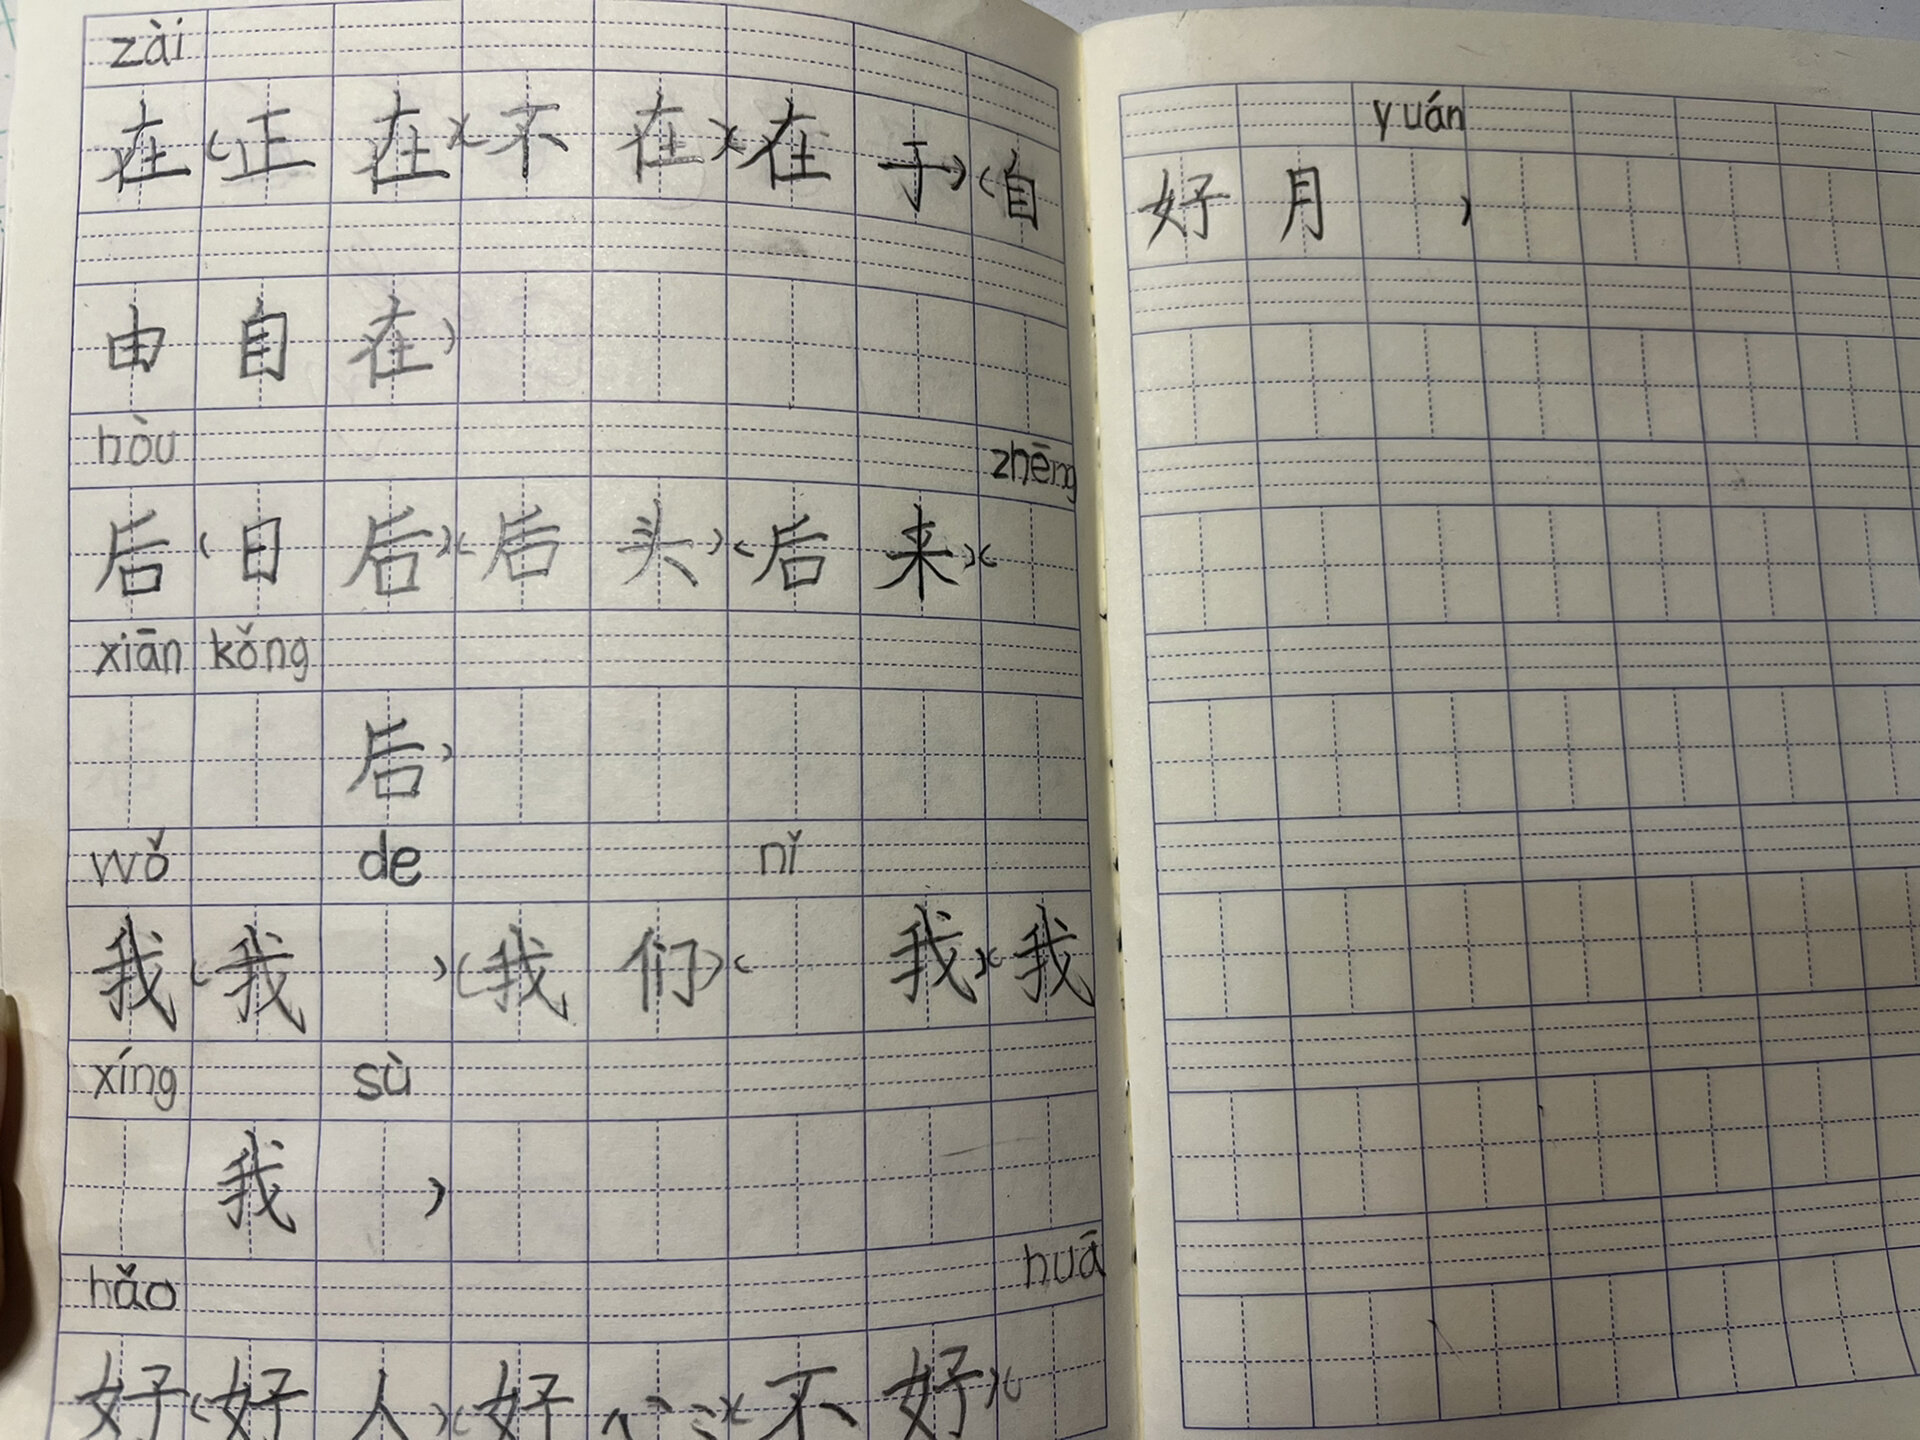 zài
在(正在)(不在)(在于)(自
由自在)
hòu zhēng
后(日后)(后头)(后来)(
xiān kǒng
后)
wǒ de nǐ
我(我 )(我们)( 我)(我
xíng sù
我 )
hǎo huā
好(好人)(好心)(不好)(
yuán
好月 )